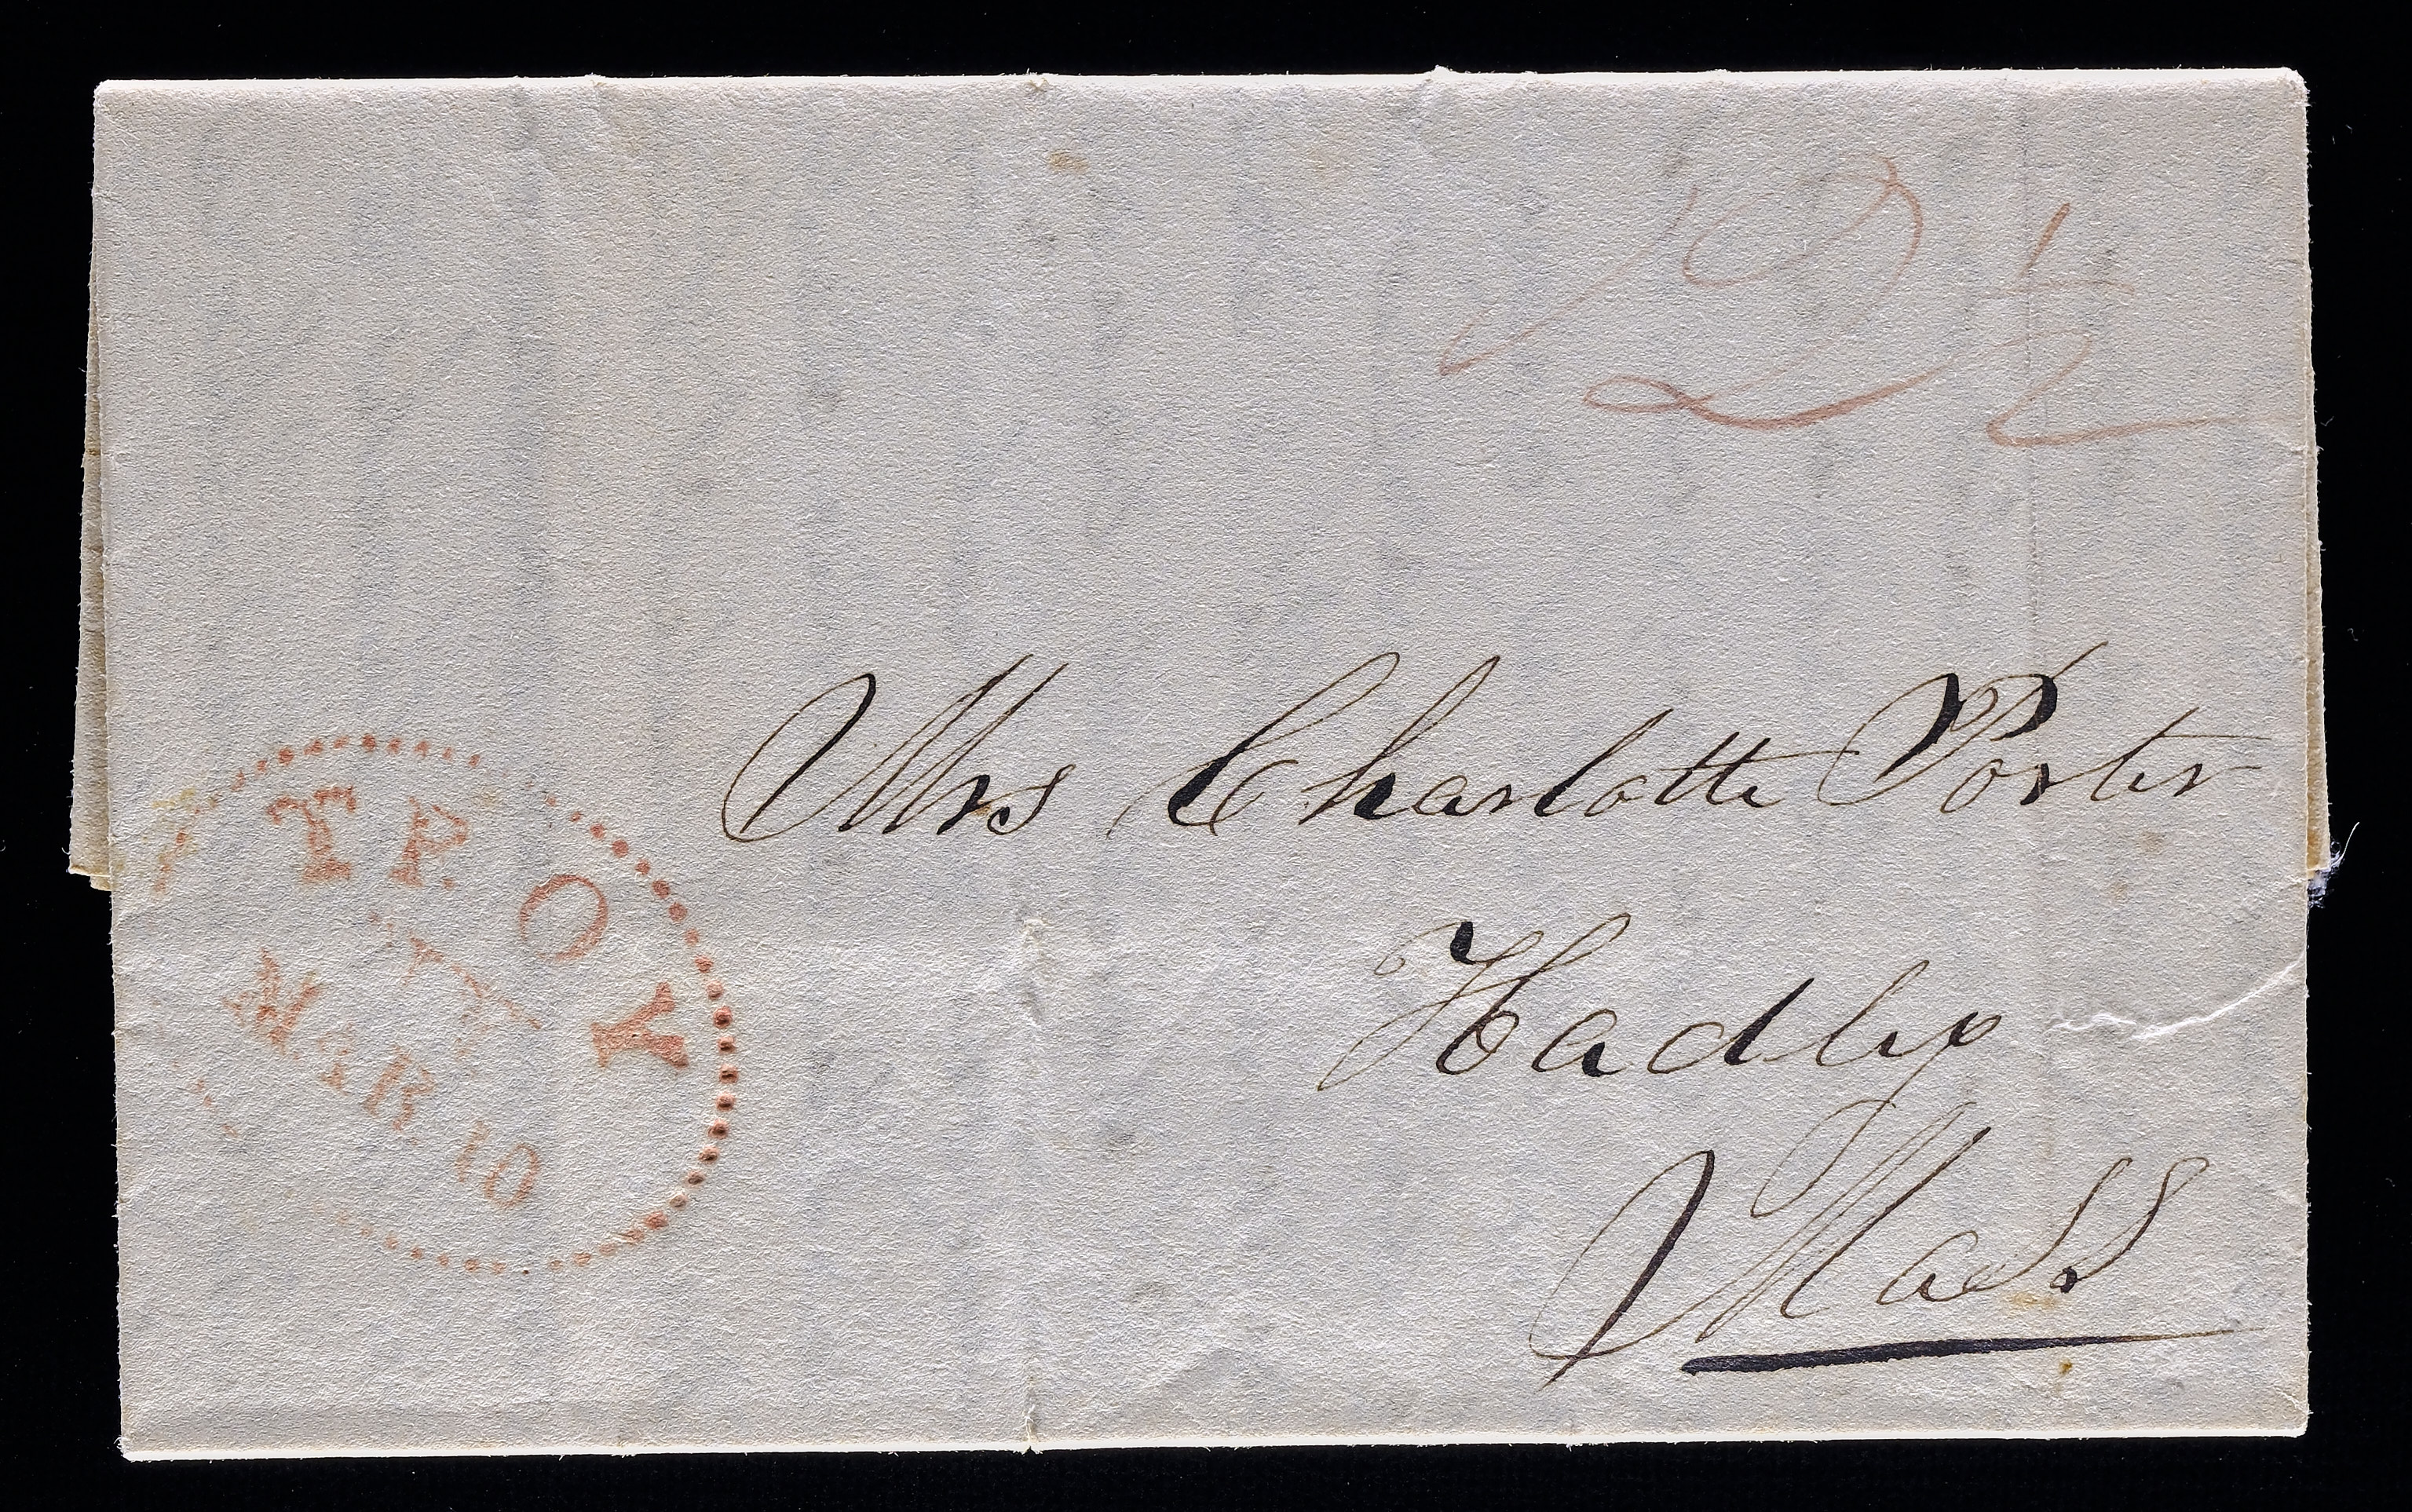 12 1/2
Mrs Charlotte Porter
Hadley
Mass
TROY
MAR 10